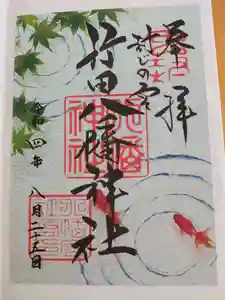 奉拝
封じの宮
行田八幡神社
令和四年
八月二十五日